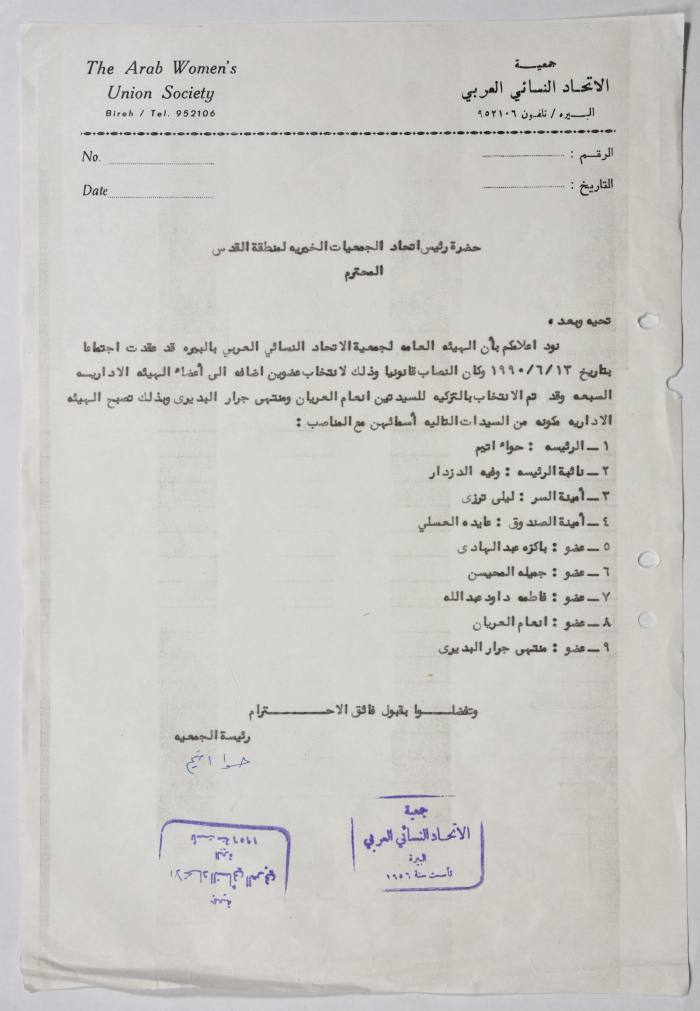 The Arab Women's
Union Society
Bireh / Tel. 952106
جمعيـــــة
الاتحـاد النسائي العربي
البـــيره / تلفـون ٩٥٢١٠٦
No.
Date
الرقـم :
التاريخ :
حضرة رئيس اتحاد الجمعيات الخيريه لمنطقة القدس
المحترم
تحيه وبعد ،
نود اعلامكم بأن الهيئه العامه لجمعية الاتحاد النسائي العربي بالبيره قد عقدت اجتماعا
بتاريخ ١٩٩٠/٦/١٣ وكان النصاب قانونيا وذلك لانتخاب عضوين اضافه الى أعضاء الهيئه الاداريـــه
السبعه وقد تم الانتخاب بالتزكيه للسيدتين انعام العريان ومنتهى جرار البديرى وبذلك تصبح الهيئه
الاداريه مكونه من السيدات التاليه أسمائهن مع المناصب :
١ ــ الرئيسه : حواء اتيم
٢ ــ نائبة الرئيسه : وفيه الدزدار
٣ ــ أمينة السر : ليلى ترزى
٤ ــ أمينة الصندوق : عايده العسلي
٥ ــ عضو : باكزه عبد الهادى
٦ ــ عضو : جميله المحيسن
٧ ــ عضو : فاطمه داود عبد الله
٨ ــ عضو : انعام العريان
٩ ــ عضو : منتهى جرار البديرى
وتفضلـــــوا بقبول فائق الاحـــــــترام
رئيسة الجمعيه
حوا اتيم
جمعية
الاتحاد النسائي العربي
البيرة
تأسست سنة ١٩٥٦
جمعية
الاتحاد النسائي العربي
البيرة
تأسست سنة ١٩٥٦